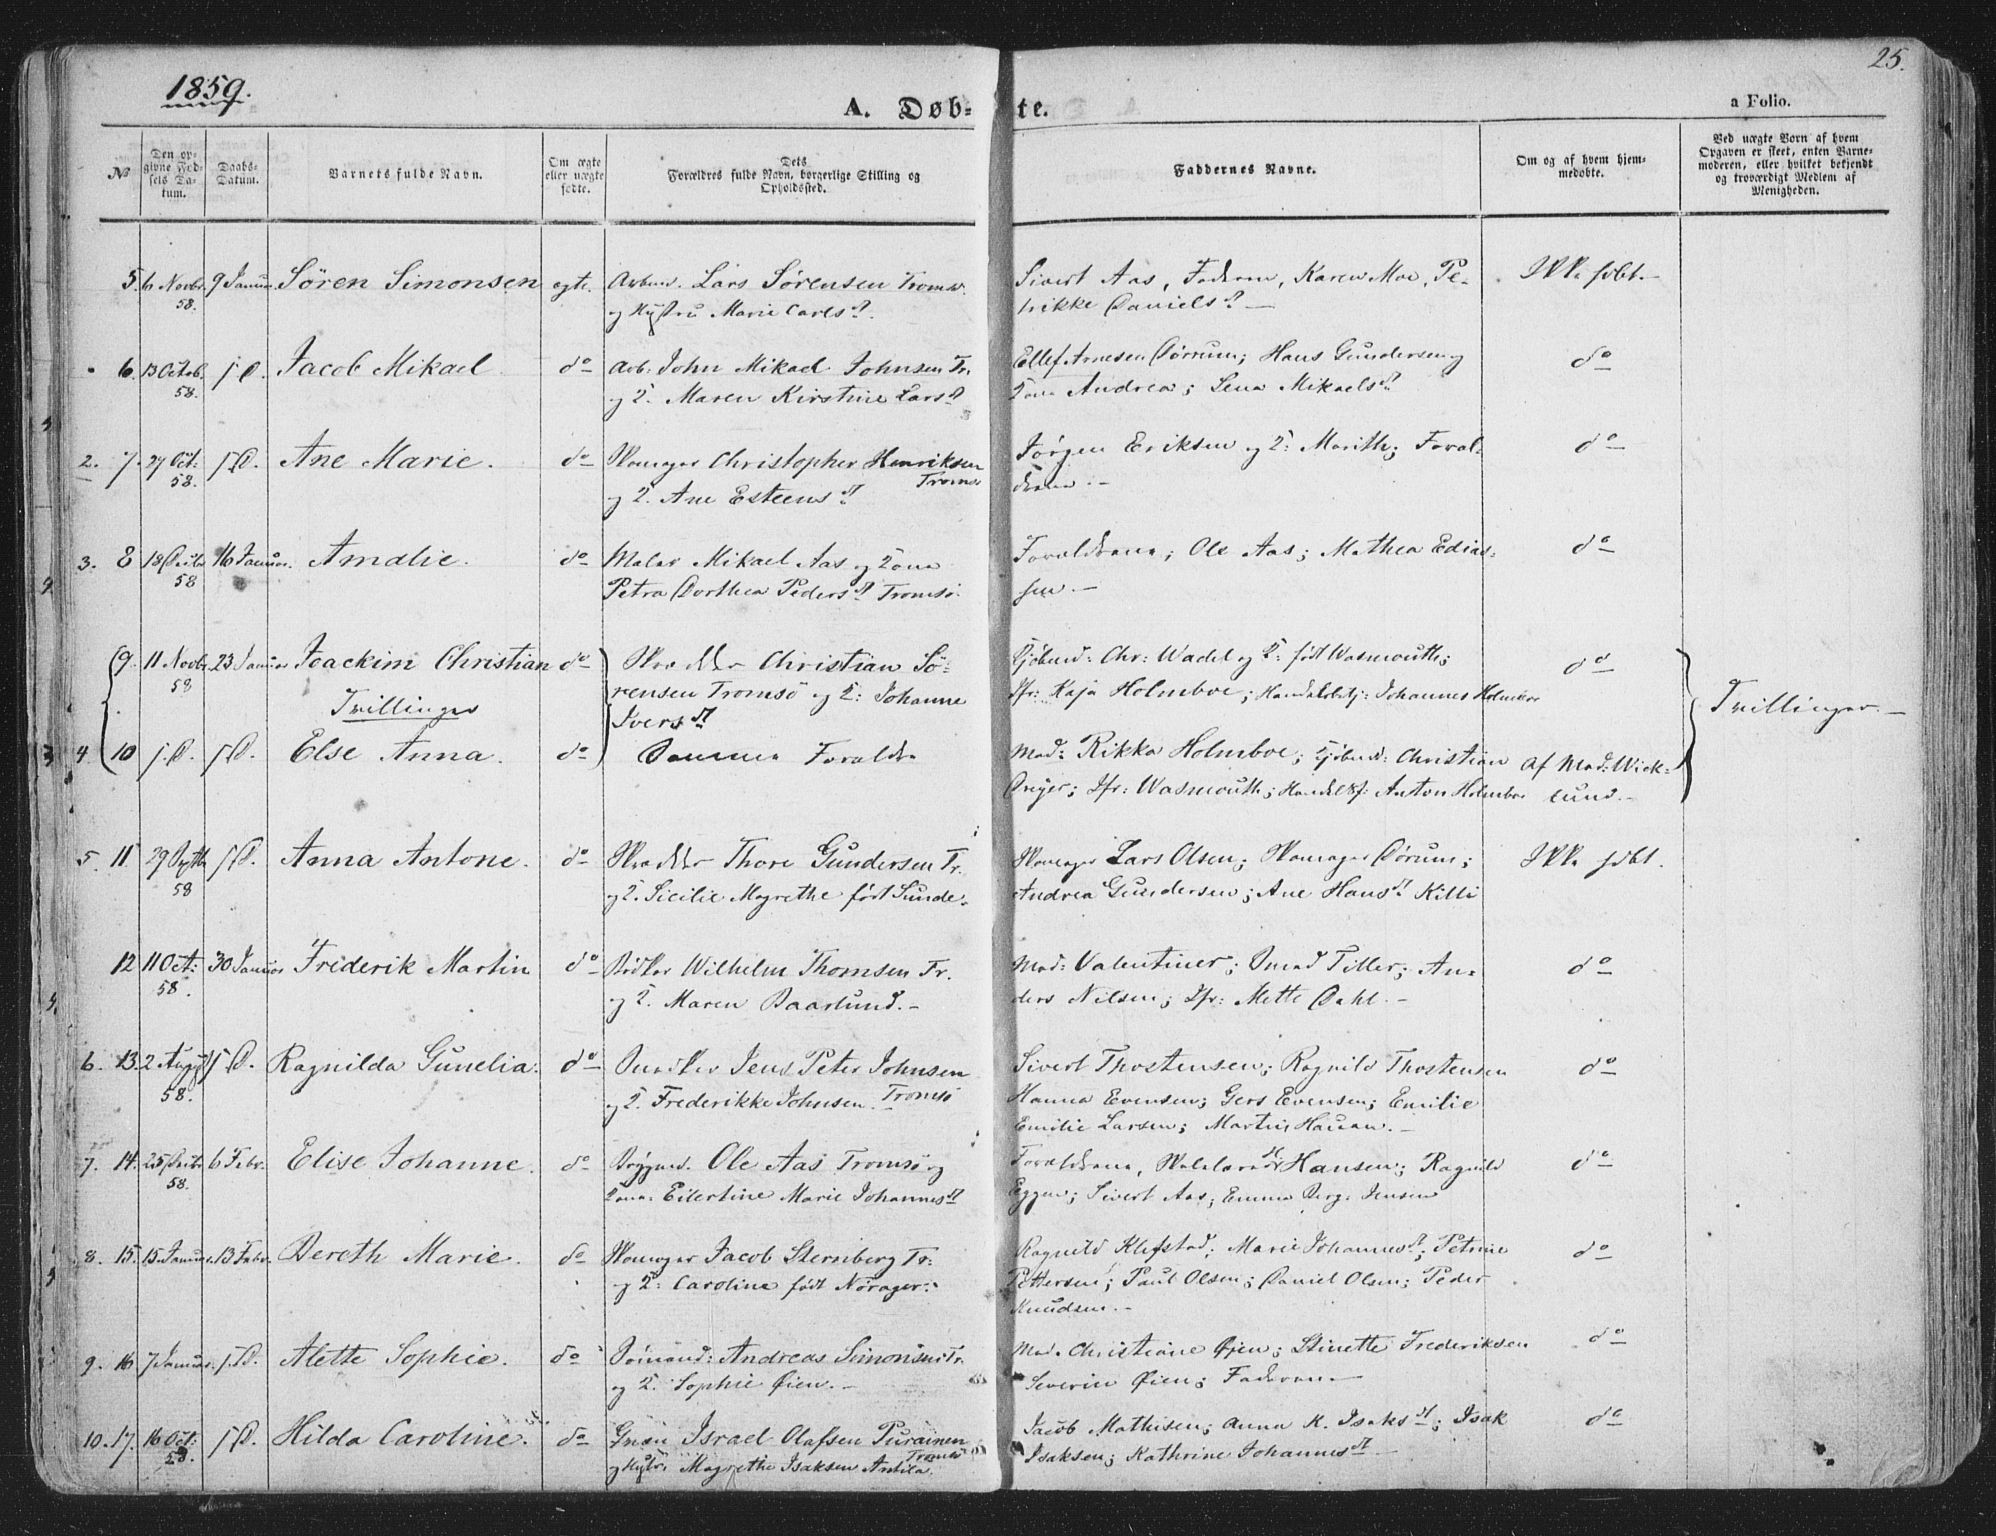 1859.
25.
A. Døb-
te.
a Folio.
№
Den opgivne Fødsels Datum.
Daabs-Datum.
Barnets fulde Navn.
Om ægte eller uægte fødte.
Dets Forældres fulde Navn, borgerlige Stilling og Opholdssted.
Faddernes Navne.
Om og af hvem hjemmedøbte.
Ved uægte Børn af hvem Opgaven er skeet, enten Barnemoderen, eller hvilket bekjendt og troværdigt Medlem af Menigheden.
5. 6 Novbr 58. 9 Januar. Sören Simonsen egte. Arbmd. Lars Sørensen Tromsø.
og Hustru Marie Carls d.
Sivert Aas, Faderen, Karen Moe, Pe-
trikke Daniels d.
Ikke hdbt.
6. 13 Octob. 58. s. D. Jacob Mikael do Arb. John Mikael Johnsen Tr.
og D. Maren Kirstine Lars d
Ellef Arnesen Dørrum; Hans Gundersen og
Kone Andrea; Lena Mikaels d
do
2. 7. 27 Oct: 58. s. D. Ane Marie. do Skomager Christopher Henriksen
Tromsø
og K. Ane Esteens d
Jørgen Eriksen og K: Marith; Foræl-
drene.-
do
3. 8 18 Decbr 58 16 Januar. Amalie. do Maler Mikael Aas og Kone
Petra Dorthea Peders d Tromsø.
Forældrene; Ole Aas; Mathea Edias-
sen.-
do
9. 11 Novbr 58 23 Januar Joackim Christian do Skrædder Christian Sö-
Tvillinger
rensen Tromsö og K: Johanne
Ivers d
Kjøbmd: Chr: Wadel og K: født Wasmouth;
Jfr: Kaja Holmboe; Handelsbetj: Johannes Holmboe
do
Tvillinger.-
4 10 s. D. s. D. Else Anna. do Samme Forældre
Mad: Rikka Holmboe; Kjøbmd: Christian
Dreyer; Jfr: Wasmouth; Handelsf: Anton Holmboe
Af Mad: Wick-
lund.-
5. 11 29 Septb 58 s. D. Anna Antone. do Skrædder Thore Gundersen Tr.
og K. Sicilie Magrethe født Sunde.
Skomager Lars Olsen; Skomager Dørum;
Andrea Gundersen; Ane Hans d Killi
Ikke hdbt.
12 11 Oct: 58. 30 Januar Frederik Martin do Bödker Wilhelm Thomsen Tr.
og K. Maren Baarlund.-
Mad: Valentiner; Smed Tiller; An-
ders Nilsen; Jfr: Mette Dahl.-
do
6. 13. 2 Augs 58. s. D. Ragnilda Gunelia. do Snedker Jens Peter Johnsen
og K. Frederikke Johnsen. Tromsö
Sivert Thostensen; Ragnild Thostensen
Hanna Evensen; Gers Evensen; Emilie
Emilie Larsen; Martin Hauan.-
do
7. 14. 25 Decbr 58. 6 Febr. Elise Johanne. do Bryggmd. Ole Aas Tromsø og
Kone: Eilertine Marie Johannes d
Forældrene, Hansen; Ragnild
Eggen; Sivert Aas; Emma Berg: Jensen
do
8. 15. 15. Januar. 13 Febr. Bereth Marie. do Skomager Jacob Sternberg Tr:
og K: Caroline født Norager:
Ragnild Klefstad; Marie Johannes d; Petrine
Pettersen; Paul Olsen; Daniel Olsen; Peder
Knudsen.-
do
9. 16 7 Januar. s. D. Alette Sophie. do Sømand: Andreas Simonsen Tr.
og K. Sophie Øien.-
Mad. Christiane Øjen; Stinette Frederiksen
Severin Øien; Faderen
do
10. 17. 16 Oct: 58. s. D. Hilda Caroline. do Israel Olafsen Purainen
Tromsö
og Hustr. Magrethe Isaksen Antila.
Jacob Mathisen; Anna K. Isaks d; Isak
Isaksen; Kathrine Johannes d
do